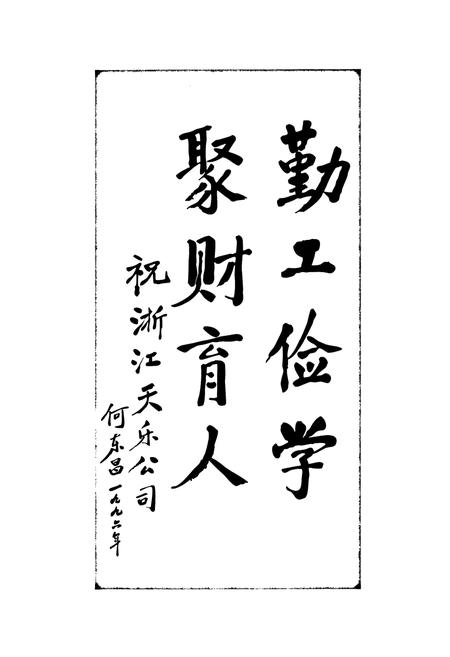 勤工俭学
聚财育人
祝浙江天乐公司
何东昌一九九六年